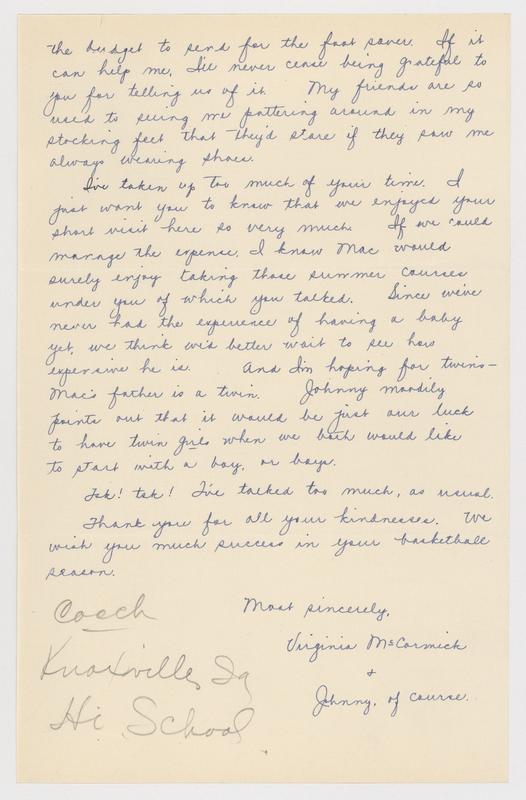 the budget to send for the foot saver. If it
can help me, I'll never cease being grateful to
you for telling us of it. My friends are so
used to seeing me puttering around in my
stocking feet that they'd stare if they saw me
always wearing shoes.
I've taken up too much of your time. I
just want you to know that we enjoyed your
short visit here so very much. If we could
manage the expense, I know Mac would
surely enjoy taking those summer courses
under you of which you talked. Since we've
never had the experience of having a baby
yet, we think we'd better wait to see how
expensive he is. And I'm hoping for twins—
Mac's father is a twin. Johnny moodily
points out that it would be just our luck
to have twin girls when we both would like
to start with a boy, or boys.
Tsk! tsk! I've talked too much, as usual.
Thank you for all your kindnesses. We
wish you much success in your basketball
season.
Most sincerely,
Virginia McCormick
+
Johnny, of course.
Coach
Knoxville, Ia
Hi School